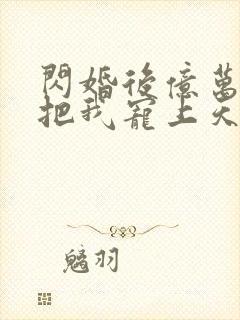 閃婚後億萬
把我寵上天
鷂羽